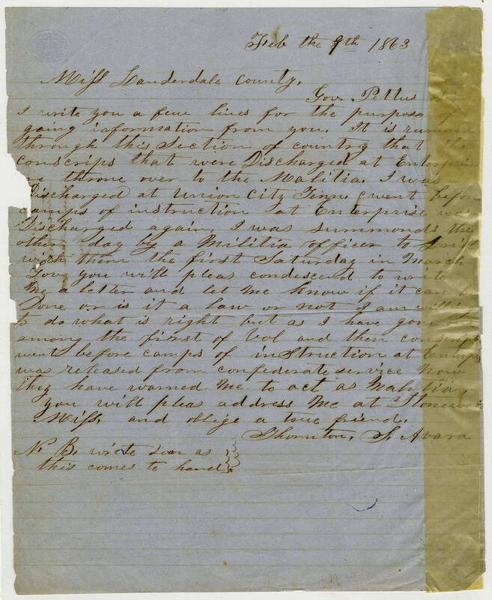 Feb the 9th 1863
Miss Lauderdale County.
Gov. Pettus
I write you a few lines for the purpose of
gaing information from you. It is rumor
through this Section of country that the
conscrips that were Discharged at Enterprise
throne over to the Malitia. I was
Discharged at Union City Tinn went before
camps of instruction at Enterprise w
Discharged again. I was summonds the
other day by a Militia officer to
with them the first Saturday in March
Gov you will pleas condescend to write
me a letter and let me know if it can
Done or is it a law or not I am
to do what is right but as I have gone
among the first of Vol and then conscript
went before camps of instruction at Enterp
was released from confederate service now
they have warned me to act as Malitia
you will pleas address me at
Miss. and oblige a true friend.
Thornton, S Avara
N. B. write soon as
this comes to hand